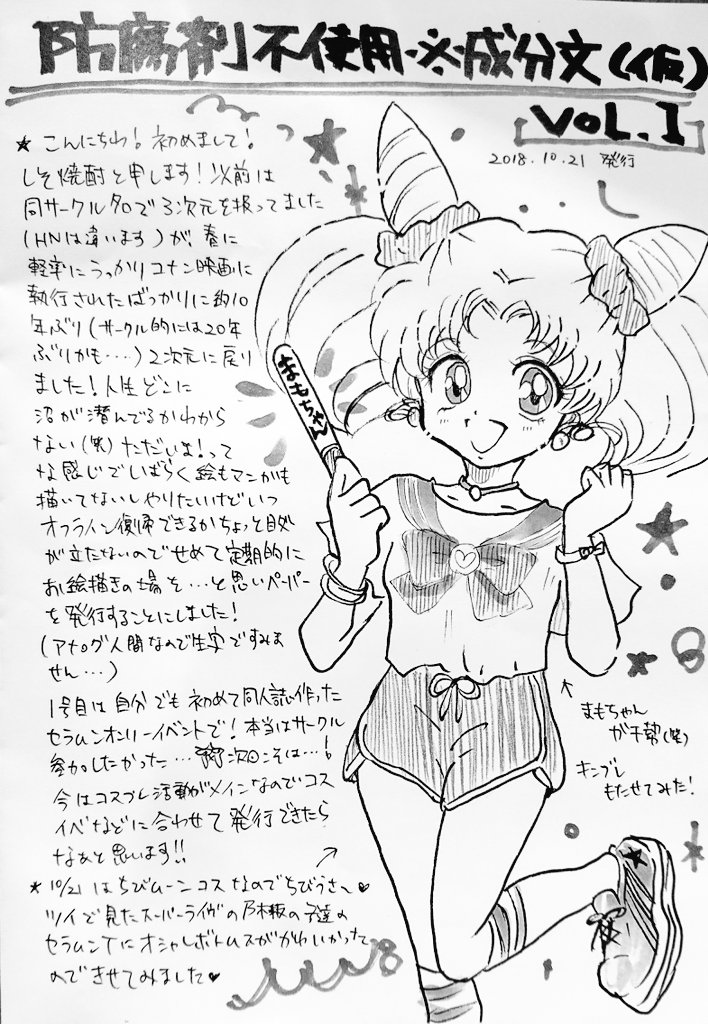 防腐剤不使用※成分文(仮)
VOL.1
2018.10.21 発行
★ こんにちわ! 初めまして!
しそ焼酎と申します! 以前は
同サークル名で3次元を扱ってました
(HNは違います)が、春に
軽率にうっかりコナン映画に
執行されたばっかりに約10
年ぶり(サークル的には20年
ぶりかも…)2次元に戻り
ました! 人生どこに
沼が潜んでるかわから
ない(笑)ただいま!って
な感じでいばらく絵もマンガも
描いてないしやりたいけどいつ
オフライン復帰できるかちょっと目処
が立たないのでせめて定期的に
お絵描きの場を…と思いペーパー
を発行することにしました!
(アナログ人間なので生字ですみま
せん…)
1号目は自分でも初めて同人誌作った
セラムンオンリーイベントで! 本当はサークル
参加したかった…次こそは…!
今はコスプレ活動がメインなのでコス
イベなどに合わせて発行できたら
なぁと思います!!
★ 10/21はちびムーンコスなのでちびうさ〜♥
ツイで見たスーパーライヴの乃木坂の子達の
セラムンTにオシャレボトムスがかわいかった
のできせてみました♥
まもちゃん
まもちゃん
が干帯(笑)
キンブレ
もたせてみた!